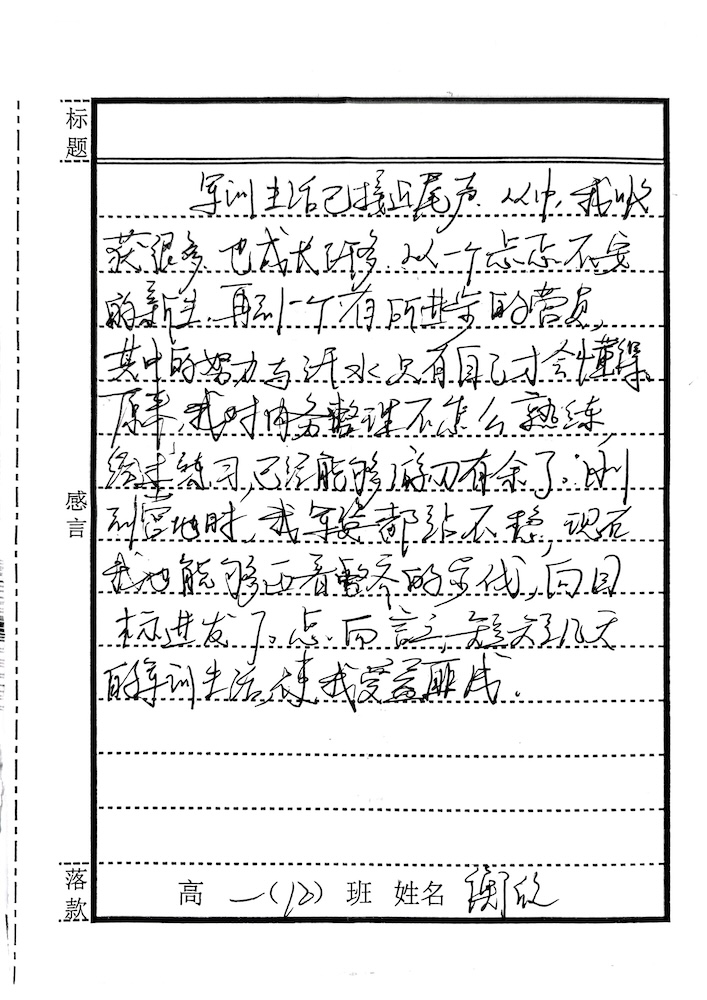 标题
军训生活已接近尾声、从中,我收
获很多、也成长许多.从一个忐忑不安
的新生,再到一个有所进步的营员,
其中的努力与汗水只有自己才会懂得.
原本,我对内务整理不怎么熟练,
经过练习,已经能够游刃有余了.刚
到营地时,我军姿都站不稳,现在
我也能够迈着整齐的步伐,向目
标进发了。总而言之,短短几天
的军训生活,使我受益匪浅.
感言
落款
高一(12)班 姓名